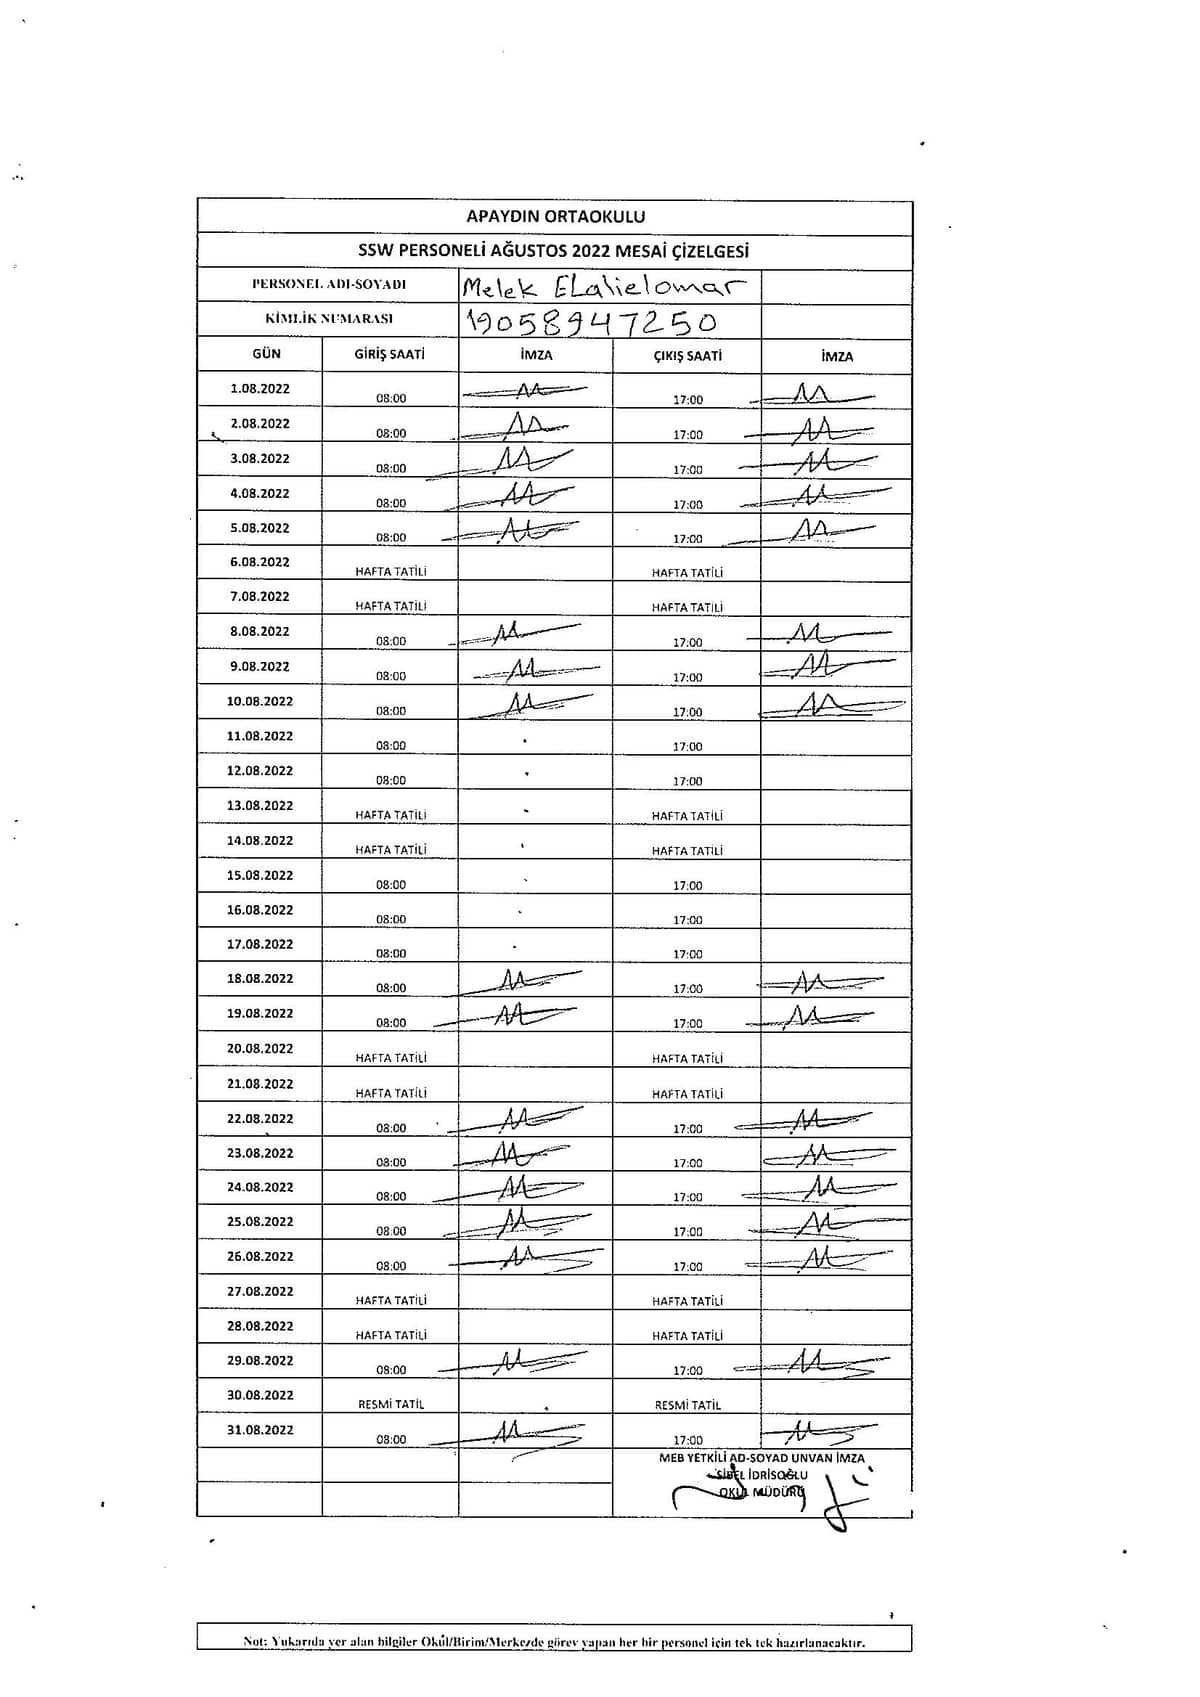 APAYDIN ORTAOKULU
SSW PERSONELİ AĞUSTOS 2022 MESAİ ÇİZELGESİ
PERSONEL ADI-SOYADI Melek ELalielomar
KİMLİK NUMARASI 19058947250
GÜN GİRİŞ SAATİ İMZA ÇIKIŞ SAATİ İMZA
1.08.2022 08:00 17:00
2.08.2022 08:00 17:00
3.08.2022 08:00 17:00
4.08.2022 08:00 17:00
5.08.2022 08:00 17:00
6.08.2022 HAFTA TATİLİ HAFTA TATİLİ
7.08.2022 HAFTA TATİLİ HAFTA TATİLİ
8.08.2022 08:00 17:00
9.08.2022 08:00 17:00
10.08.2022 08:00 17:00
11.08.2022 08:00 17:00
12.08.2022 08:00 17:00
13.08.2022 HAFTA TATİLİ HAFTA TATİLİ
14.08.2022 HAFTA TATİLİ HAFTA TATİLİ
15.08.2022 08:00 17:00
16.08.2022 08:00 17:00
17.08.2022 08:00 17:00
18.08.2022 08:00 17:00
19.08.2022 08:00 17:00
20.08.2022 HAFTA TATİLİ HAFTA TATİLİ
21.08.2022 HAFTA TATİLİ HAFTA TATİLİ
22.08.2022 08:00 17:00
23.08.2022 08:00 17:00
24.08.2022 08:00 17:00
25.08.2022 08:00 17:00
26.08.2022 08:00 17:00
27.08.2022 HAFTA TATİLİ HAFTA TATİLİ
28.08.2022 HAFTA TATİLİ HAFTA TATİLİ
29.08.2022 08:00 17:00
30.08.2022 RESMİ TATİL RESMİ TATİL
31.08.2022 08:00 17:00
MEB YETKİLİ AD-SOYAD UNVAN İMZA
SİBEL İDRİSOĞLU
OKUL MÜDÜRÜ
Not: Yukarıda yer alan bilgiler Okul/Birim/Merkezde görev yapan her bir personel için tek tek hazırlanacaktır.